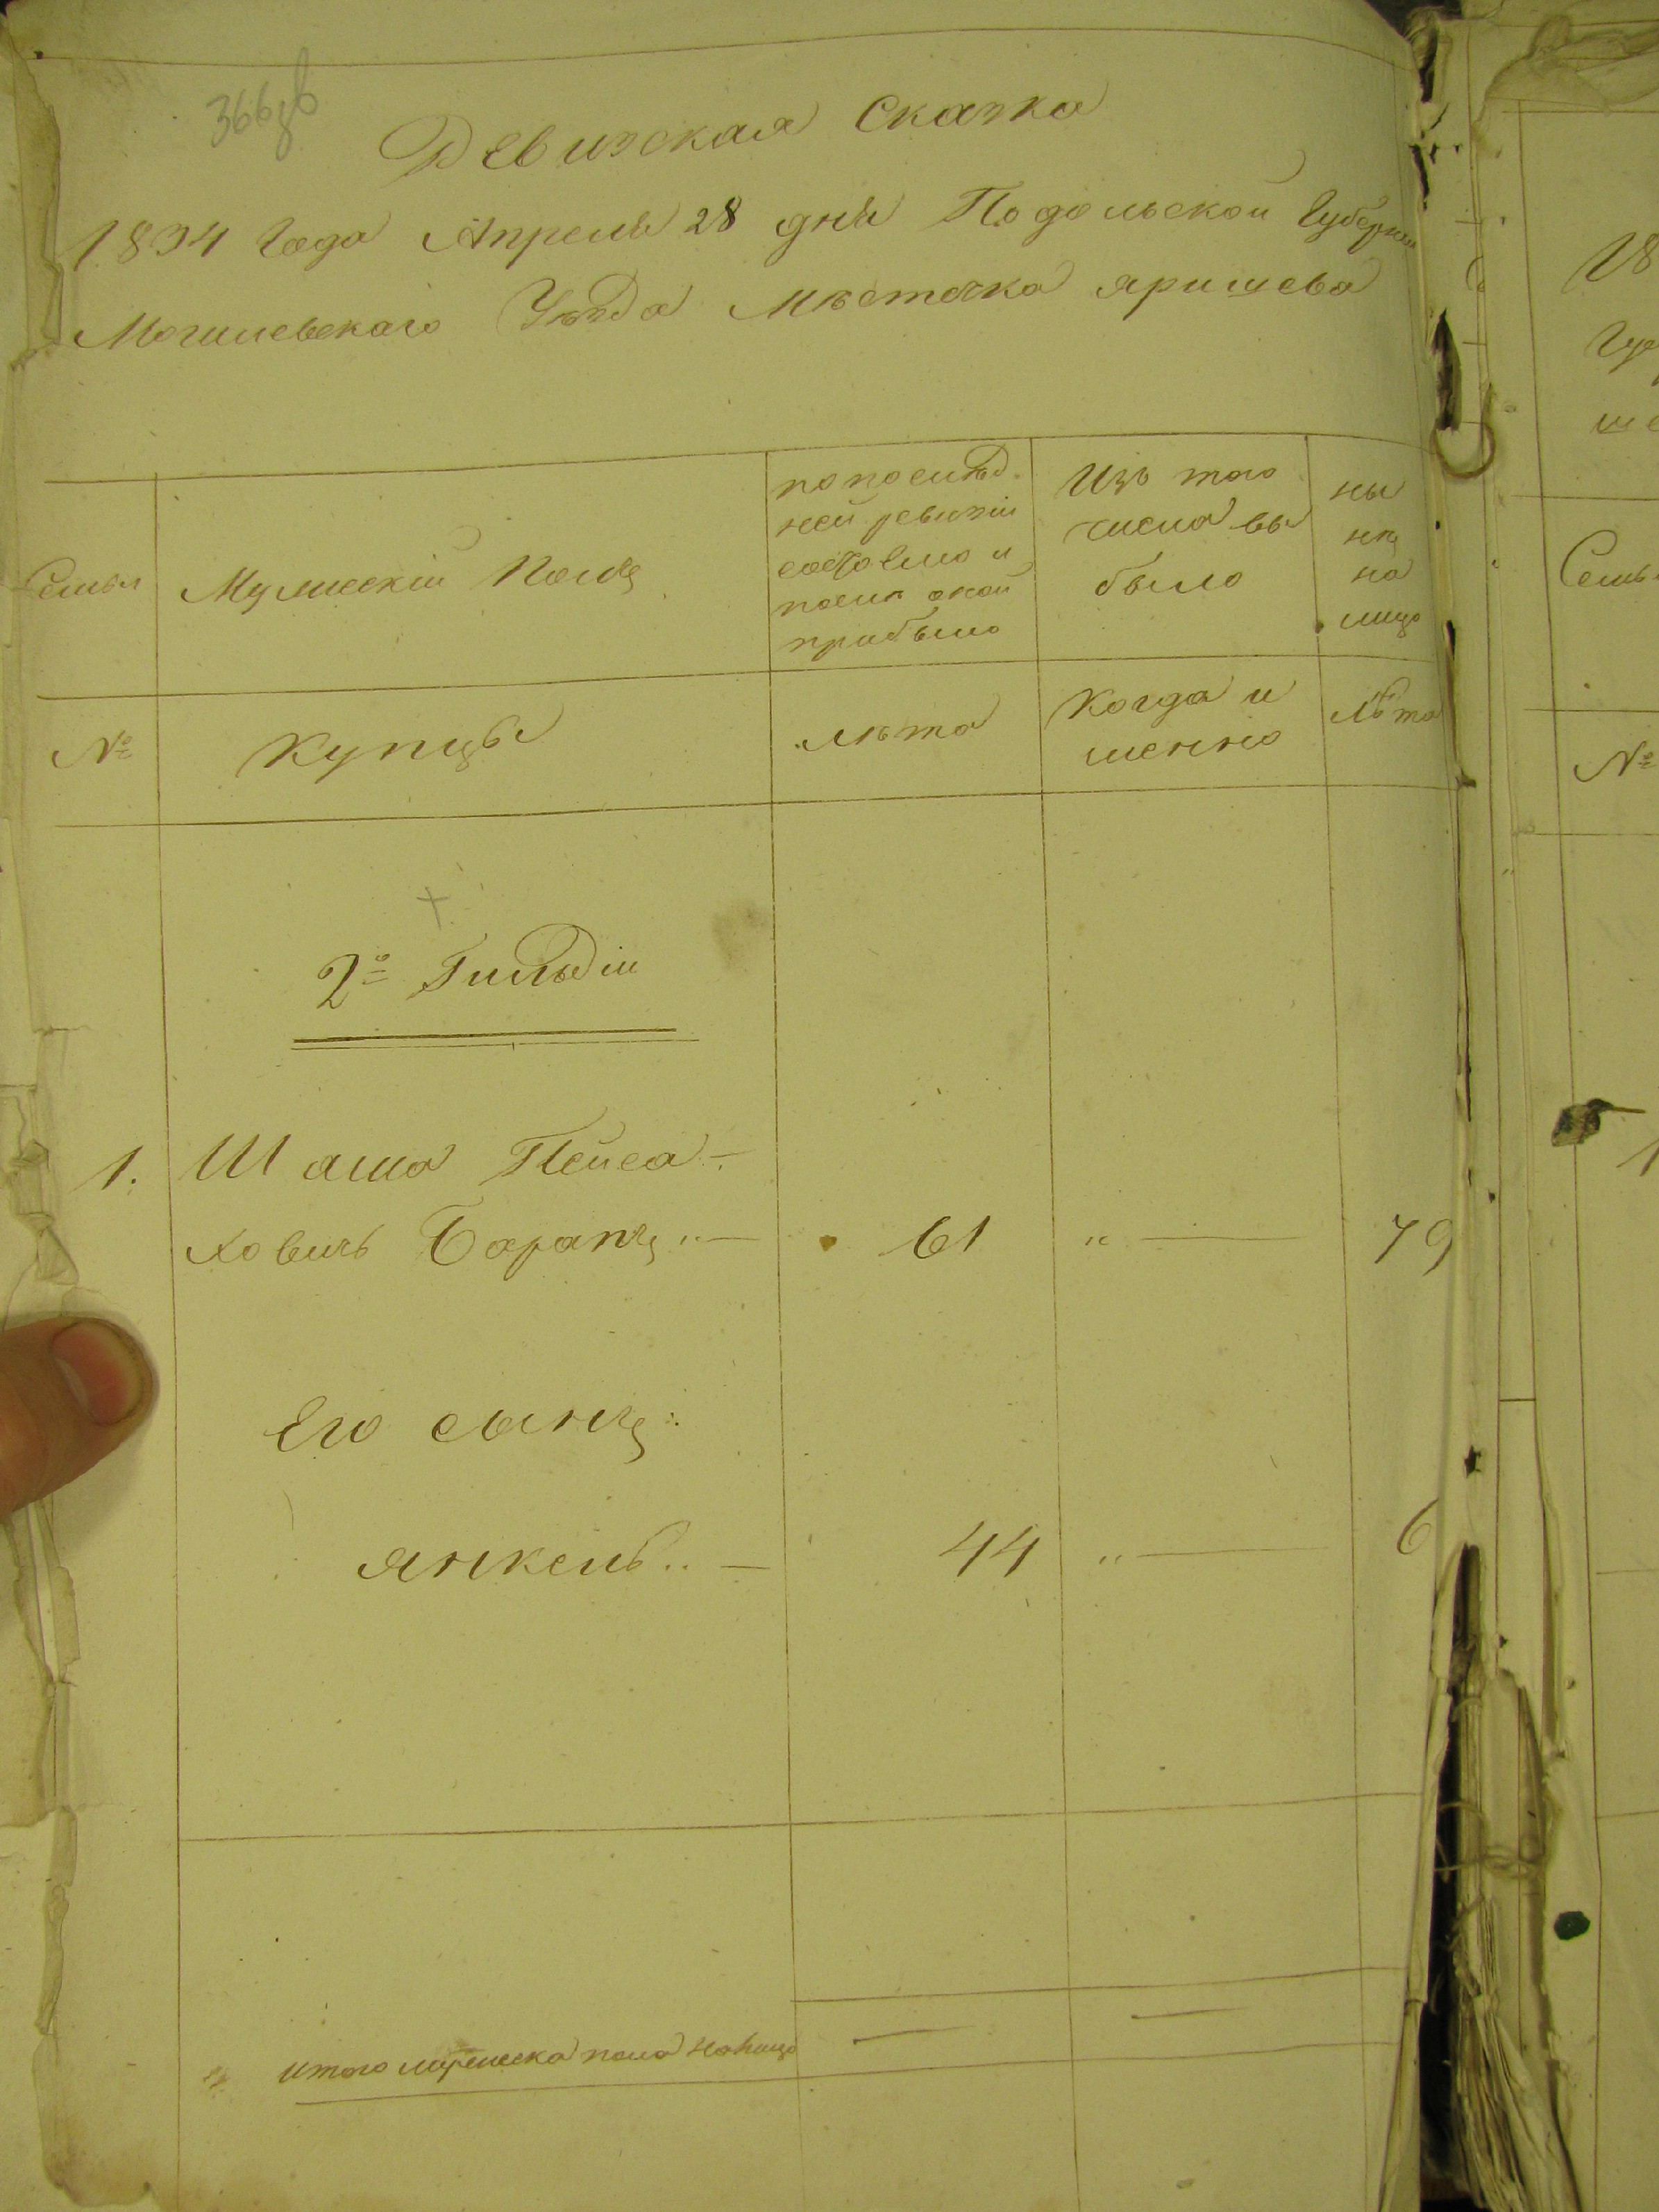 366зв
Ревизская Сказка
1834 Года Апреля 28 дня Подольской Губернии
Могилевскаго Уезда Мѣстечка яришева
Семья
Мужескiй Полъ
по послѣд
ней ревизiи
состояло и
послѣ оной
прибыло
Изъ того
числа вы
было
ны
нѣ
на
лицо
№
Купцы
лѣта
Когда и
менно
Лѣта
2й Гильдiи
1. Шама Пейса-
ховичъ Барапъ 61 79
Его сынъ
янкель 44 6
итого мужеска пола налицо
18
Гу
ше
Семья
№
1